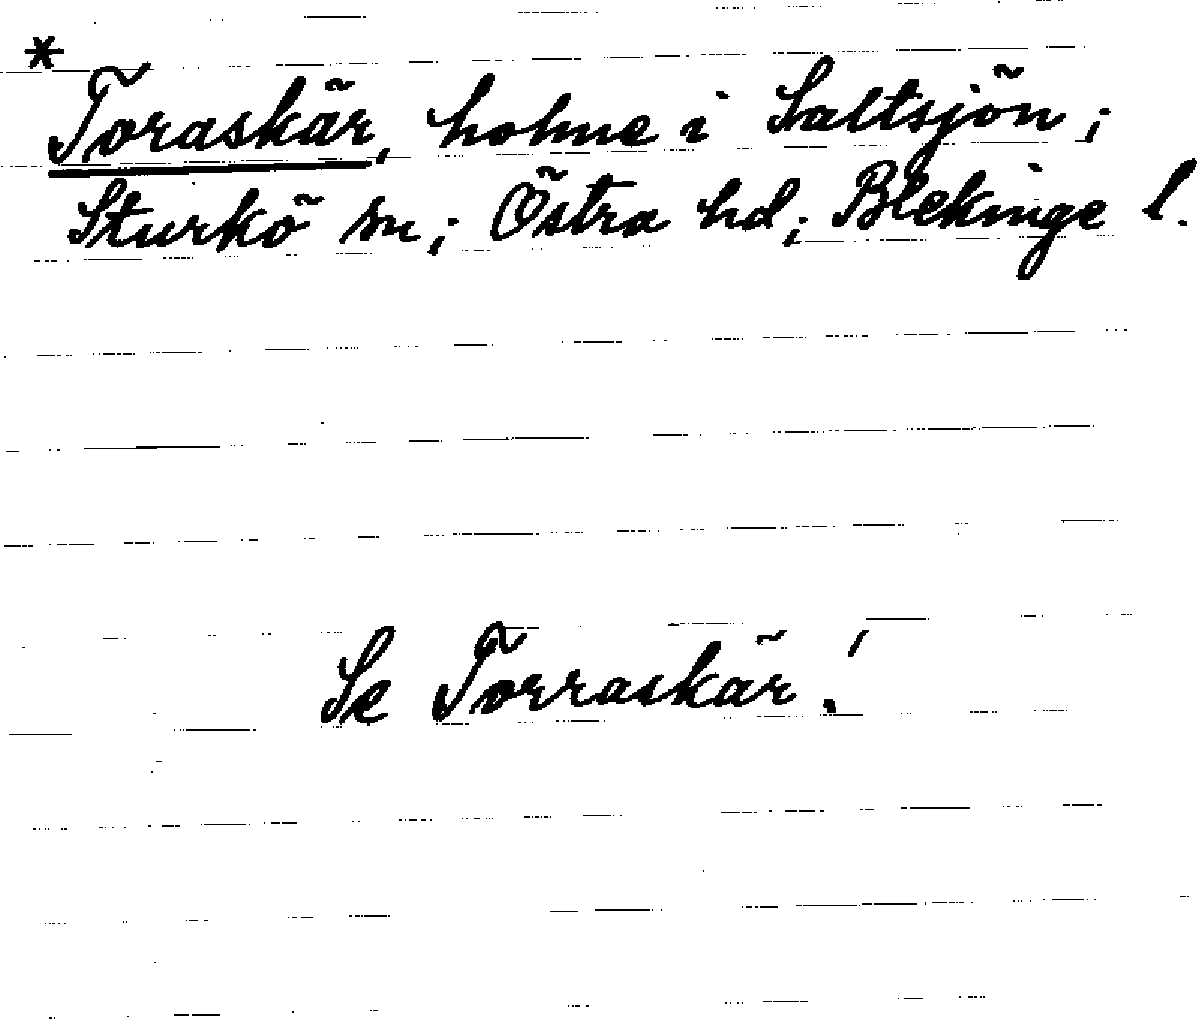 * Toraskär, holme i Saltsjön;
Sturkö sn; Östra hd; Blekinge l.
Se Torraskär!